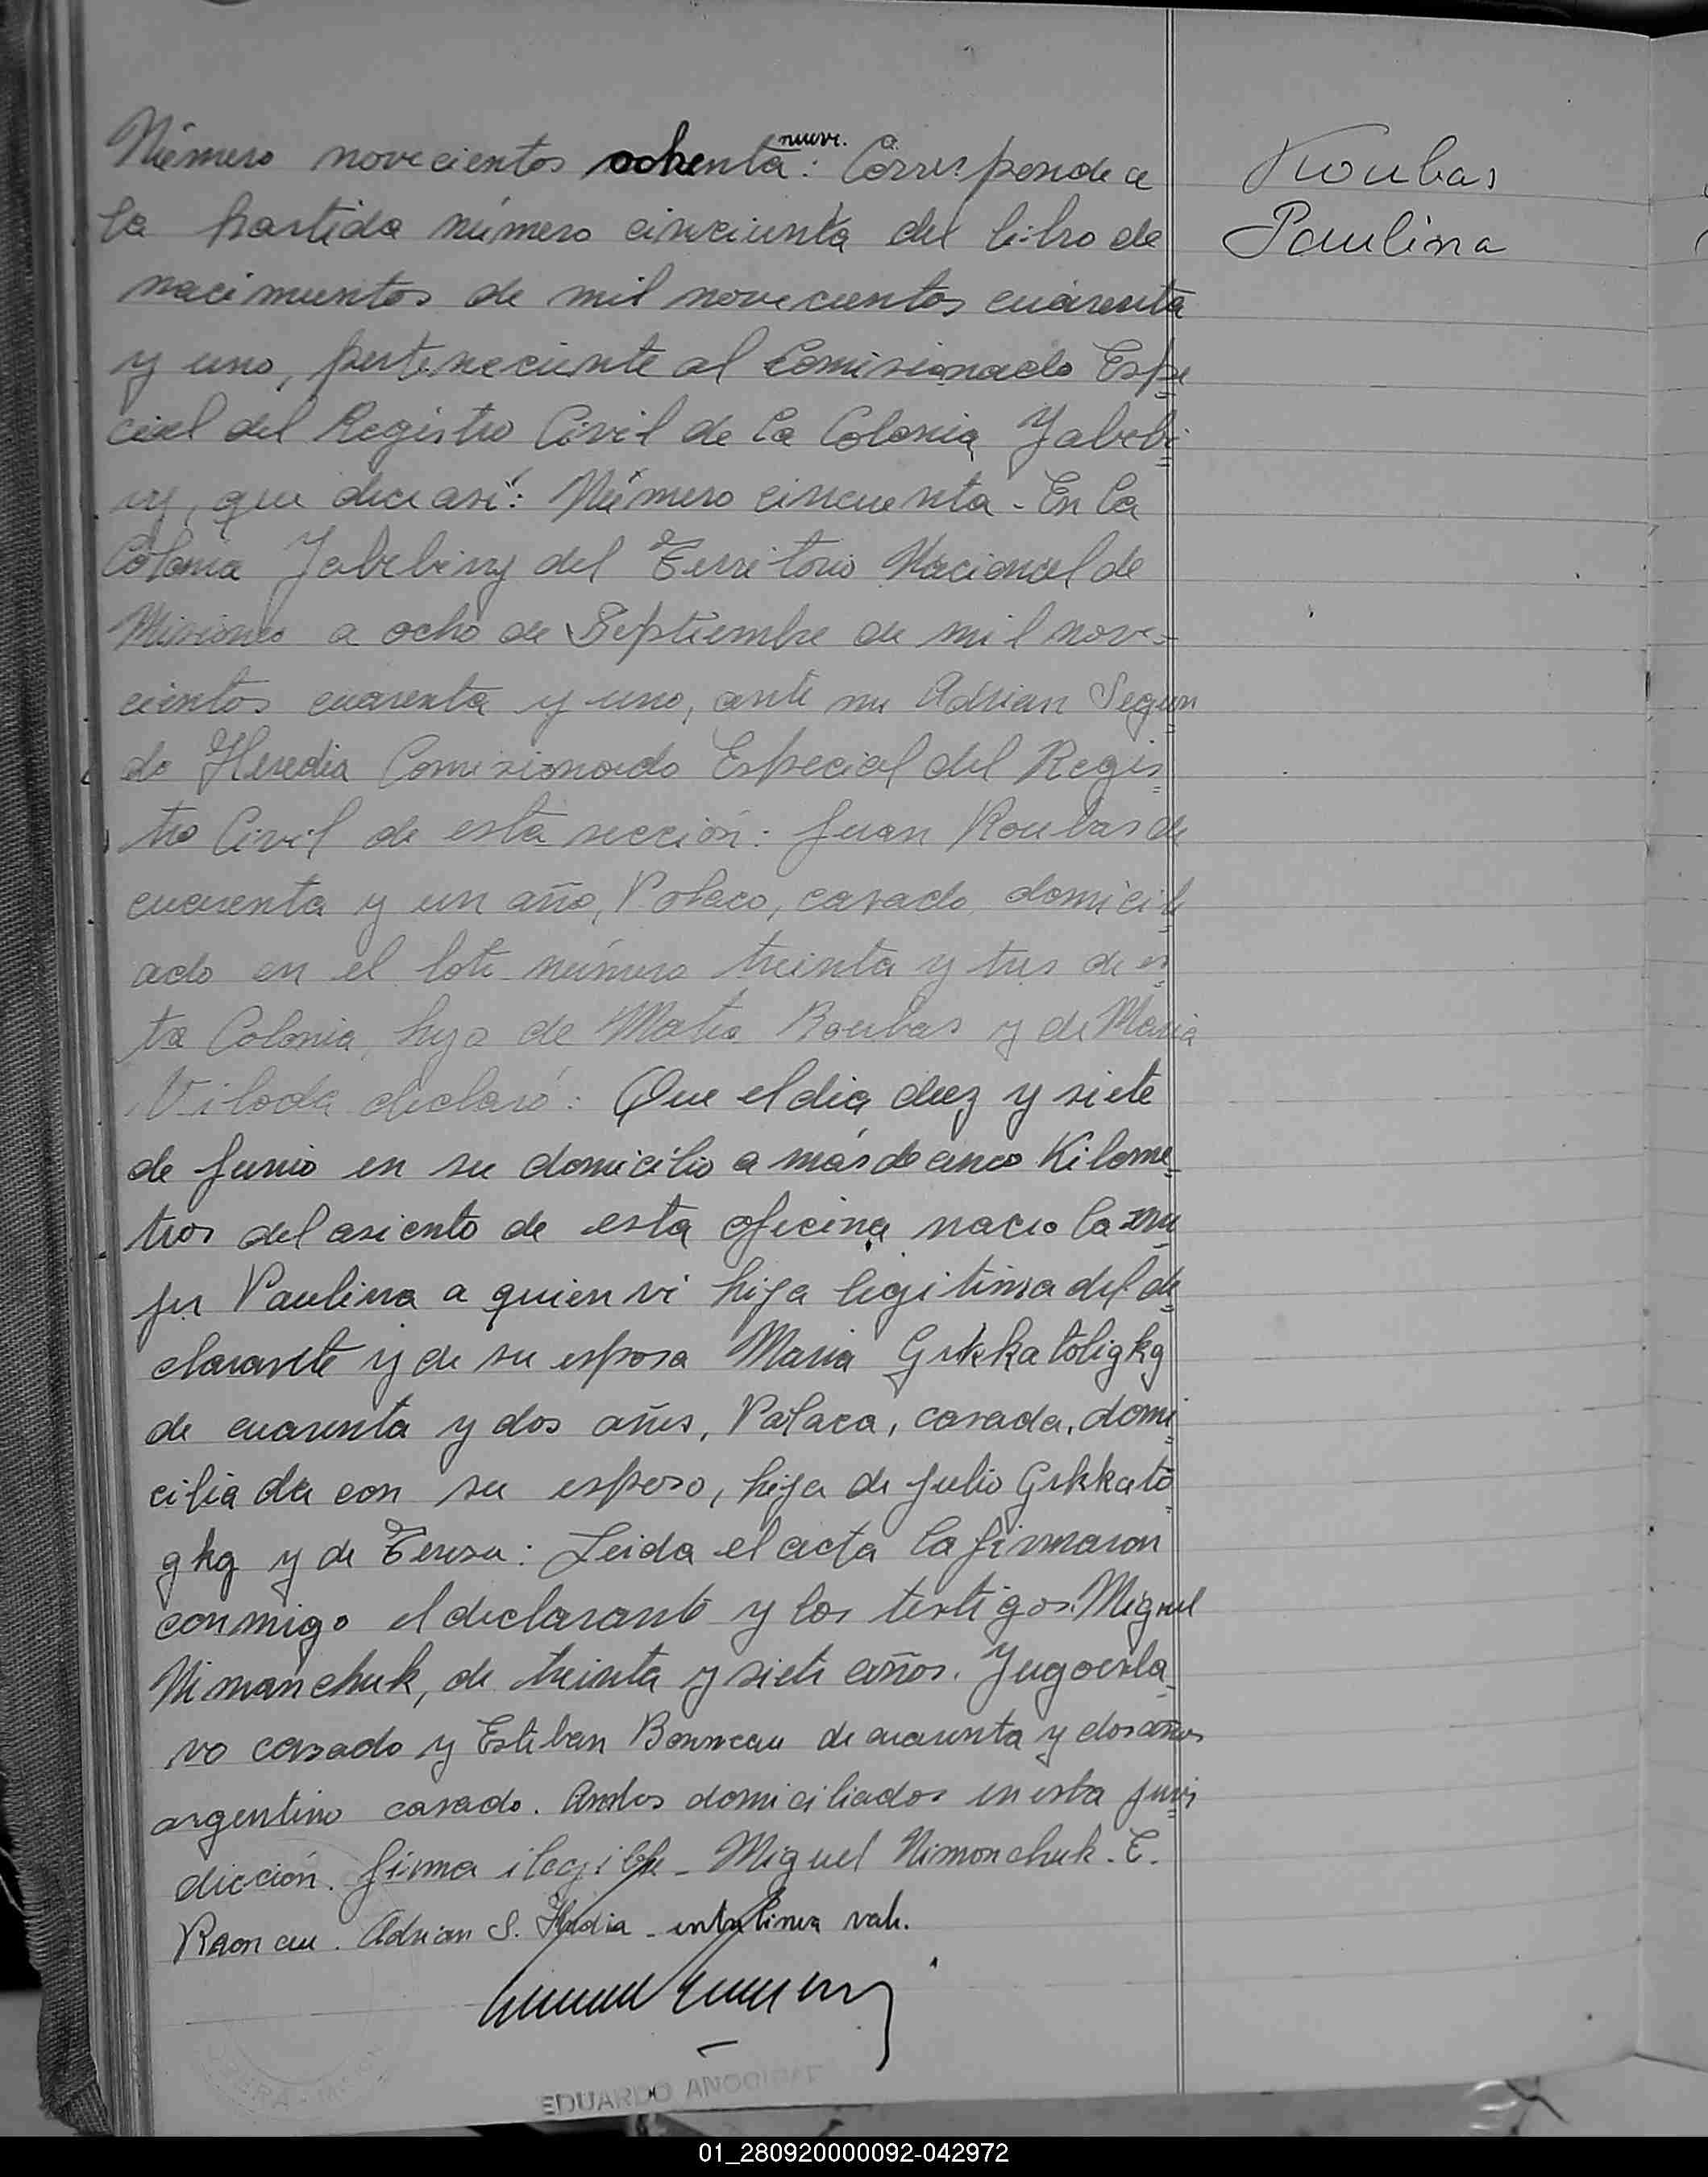 Número novecientos ochenta nueve: Corresponde a
la partida número cincuenta del libro de
nacimientos de mil novecientos cuarenta
y uno, perteneciente al Comisionado Espe
cial del Registro Civil de la Colonia Yabebi
ry, que dice asi: Número cincuenta - En la
Colonia Yabebiry del Territorio Nacional de
Misiones a ocho de Septiembre de mil nove-
cientos cuarenta y uno, ante mi Adrian Segun
do Heredia Comisionado Especial del Regis
tro Civil de esta sección: Juan Koubas de
cuarenta y un año, Polaco, casado, domicili
ado en el lote número treinta y tres de es
ta Colonia, hijo de Matia Koubas y de Maria
Viloda declaró: Que el dia diez y siete
de Junio en su domicilio a más de cinco Kilome
tros del asiento de esta oficina nacio la mu
jer Paulina a quien vi hija legitima del de
clarante y de su esposa Maria
de cuarenta y dos años, Polaca, casada, domi
ciliada con su esposo, hija de Julio Grkkato
gkg y de Teresa: Leida el acta la firmaron
conmigo el declarante y los testigos Miguel
Nimanchuk, de treinta y siete años. Yugoesla
vo casado y Esteban Bonneau de cuarenta y dos años
argentino casado. Ambos domiciliados en esta juris
dicción. firma ilegible - Miguel Nimonchuk. E.
Adrian S. Heredia - entrelinea vale.
Koubas
Paulina
EDUARDO
01_280920000092-042972